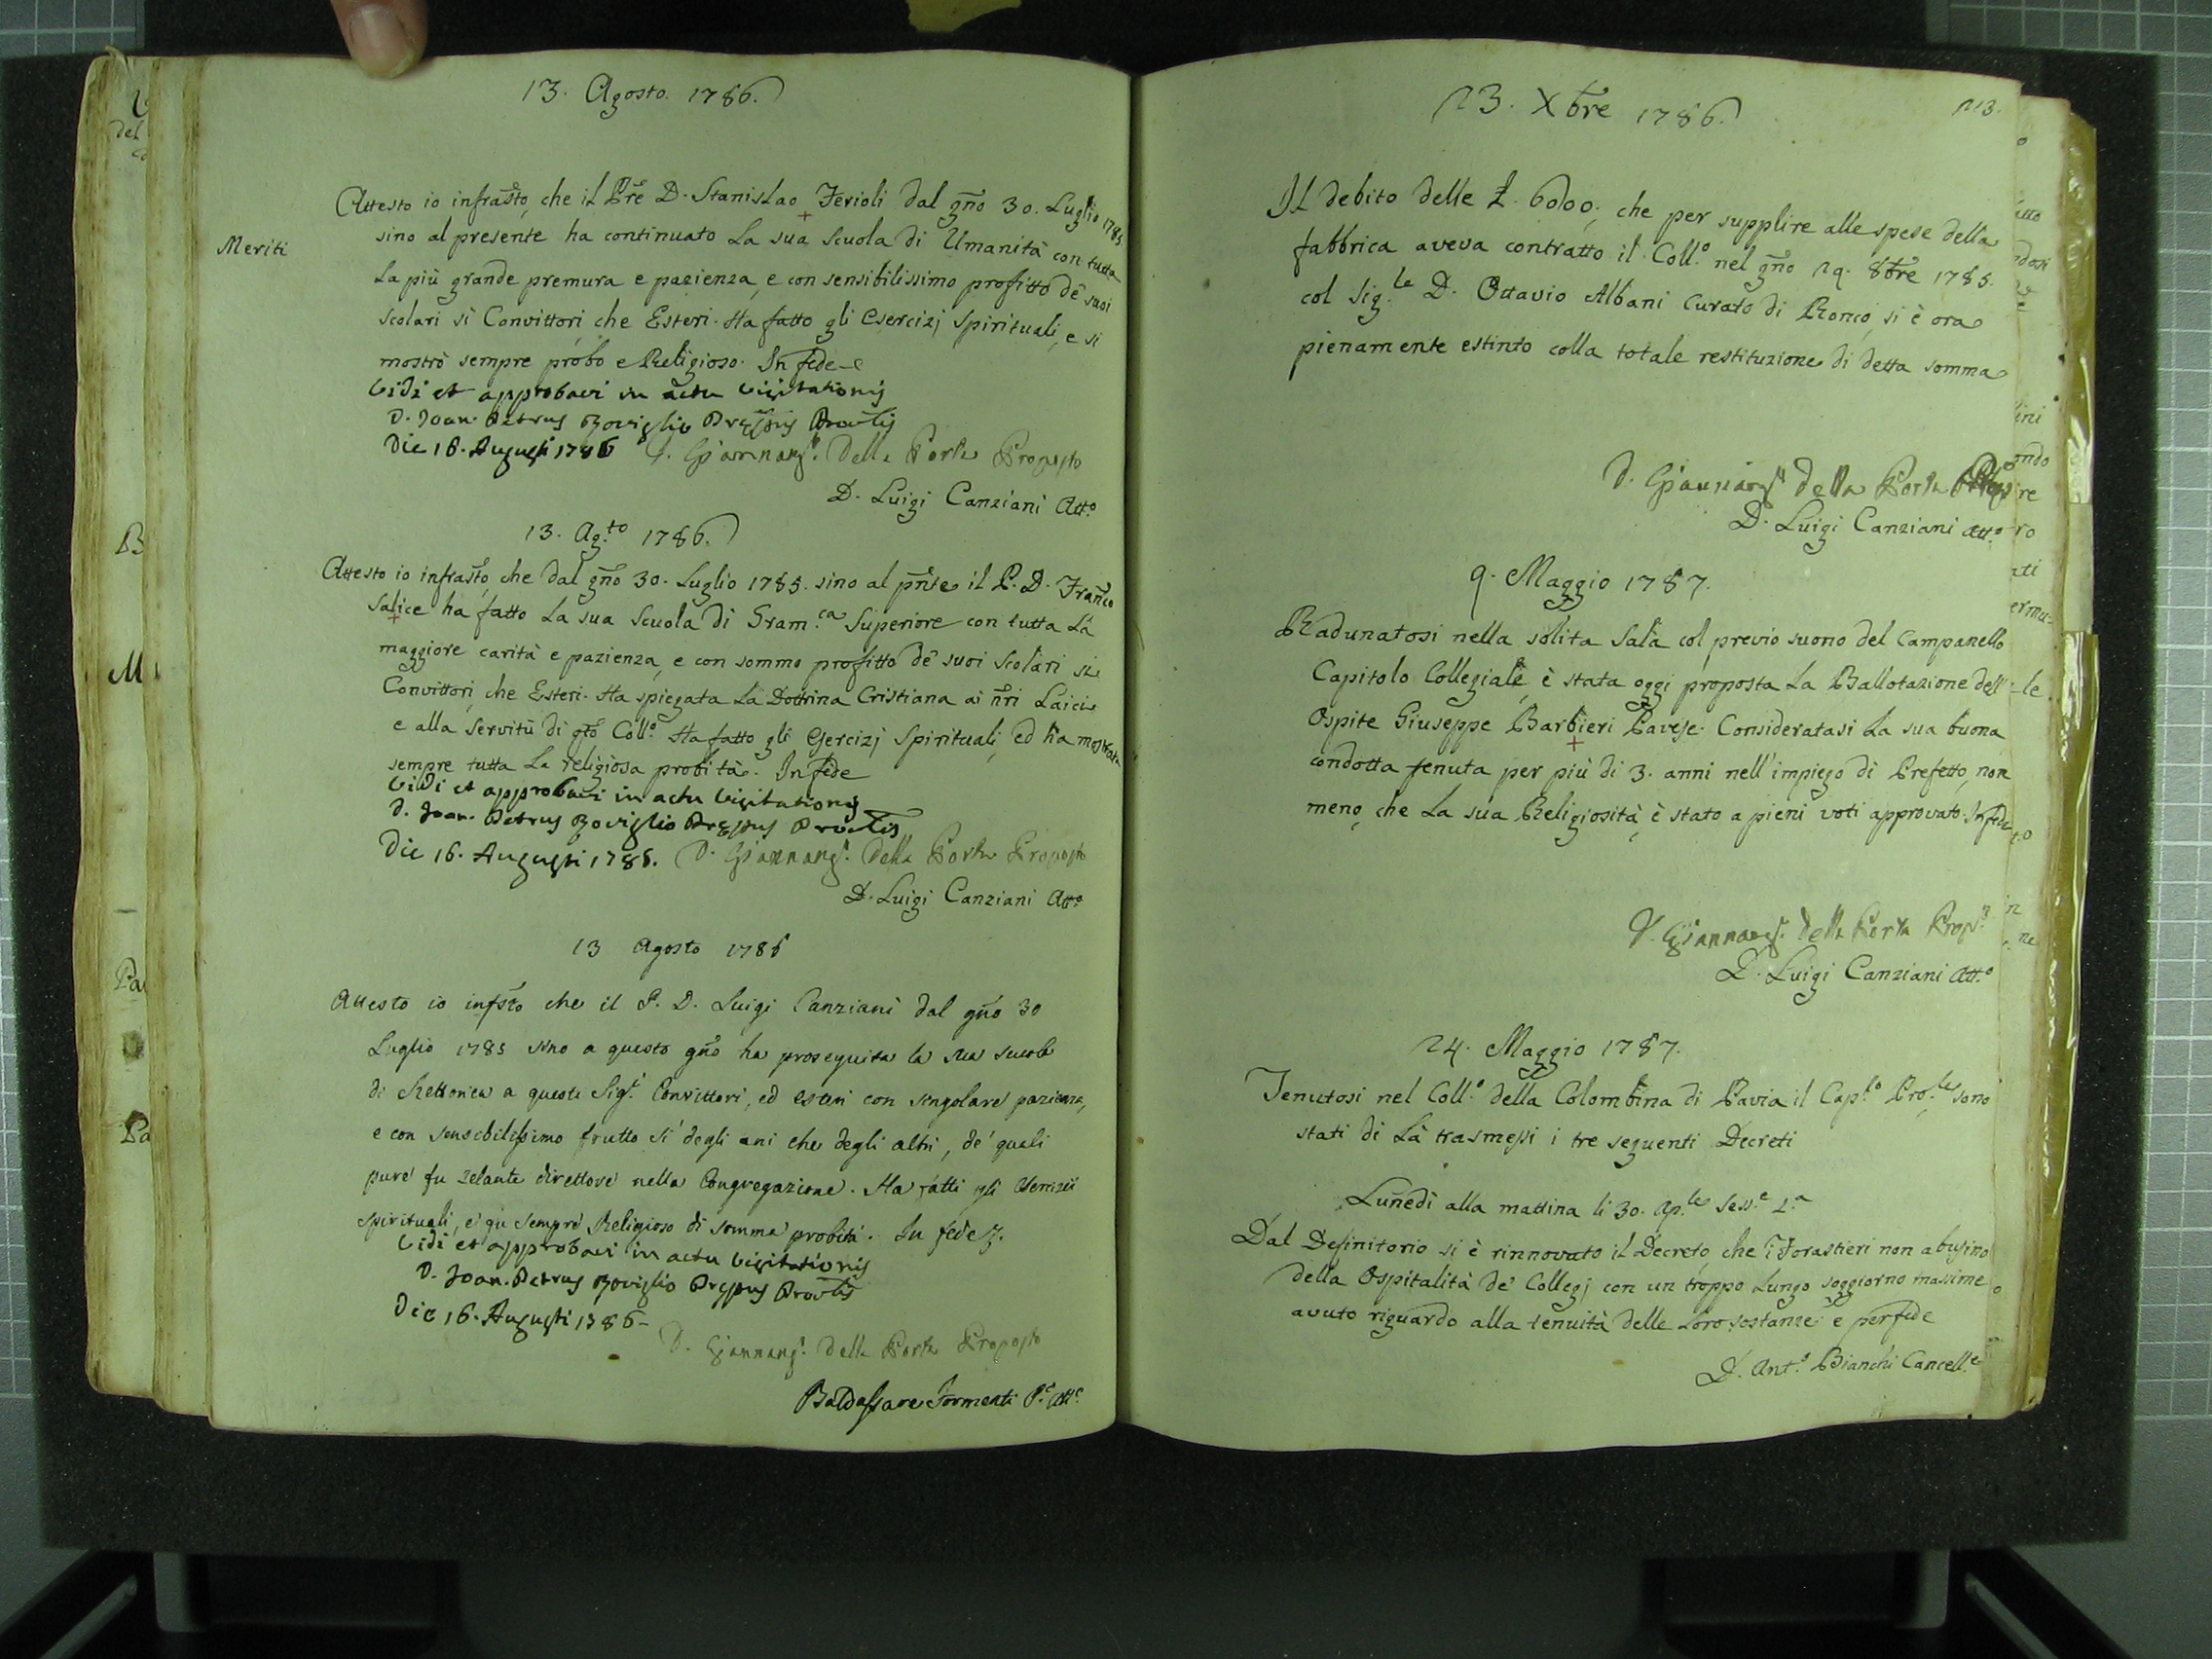 13. Agosto. 1786.
Meriti
Attesto io infrasto, che il Pre D. Stanislao Ferioli dal gno 30. Luglio 1785
sino al presente ha continuato La sua Scuola di Umanità con tutta
La più grande premura e pazienza, e con sensibilissimo profitto de' suoi
scolari sì Convittori, che Esteri. Ha fatto gli Esercizj Spirituali, e si
mostrò sempre probo e Religioso. In fede
Vidi et approbavi in actu Visitationis
D. Joan. Petrus Roviglio Præpus Provlis
Die 16. Augusti 1786 D. Giannang. Della Porta Proposto
D. Luigi Canziani Att.o
13. Ag.to 1786.
Attesto io infrasto, che dal gno 30. Luglio 1785. sino al pnte il P. D. Franco
Salice ha fatto La sua Scuola di Gram.ca Superiore con tutta La
maggiore carità e pazienza, e con sommo profitto de' suoi Scolari sì
Convittori, che Esteri. Ha spiegata La Dottrina Cristiana ai nri Laici
e alla Servitù di qto Coll.o Ha fatto gli Esercizj Spirituali, ed ha mostrata
sempre tutta La religiosa probità. In fede
Vidi et approbavi in actu Visitationis
D. Joan. Petrus Roviglio Præpus Provlis
Die 16. Augusti 1786. D. Giannang. Della Porta Proposto
D. Luigi Canziani Att.o
13 Agosto 1786
Attesto io infsto che il P. D. Luigi Canziani dal gno 30
Luglio 1785 sino a questo gno ha proseguita la sua scuola
di Rettorica a questi Sig.i Convittori, ed esteri con singolare pazienza,
e con sensibilissimo frutto sì degli uni che degli altri, de' quali
pure fu zelante direttore nella Congregazione. Ha fatti gli Esercizii
spirituali, e fu sempre Religioso di somma probità. In fede
Vidi et approbavi in actu Visitationis
D. Joan. Petrus Roviglio Præpus Provlis
Die 16. Augusti 1786
D. Giannang. Della Porta Proposto
Baldassare Formenti P. Att.
23. Xbre 1786.
213.
Il debito delle £. 6000, che per supplire alle spese della
fabbrica aveva contratto il Coll.o nel gno 29. 8bre 1785.
col Sig.le D. Ottavio Albani Curato di Ronco, si è ora
pienamente estinto colla totale restituzione di detta somma
D. Giannang. della Porta
D. Luigi Canziani Att.o
9. Maggio 1787.
Radunatosi nella solita Sala col previo suono del Campanello
Capitolo Collegiale, è stata oggi proposta La Ballotazione dell'
Ospite Giuseppe Barbieri Pavese. Consideratasi La sua buona
condotta tenuta per più di 3. anni nell'impiego di Prefetto, non
meno, che La sua Religiosità, è stato a pieni voti approvato. In fede
D. Giannang. della Porta Prop.
D. Luigi Canziani Att.o
24. Maggio 1787.
Tenutosi nel Coll.o della Colombina di Pavia il Cap.lo Pro.le sono
stati di Là trasmessi i tre seguenti Decreti
Lunedì alla mattina li 30. Ap.le Sess.e 1.a
Dal Definitorio si è rinnovato il Decreto, che i Forastieri non abusino
della Ospitalità de' Collegj con un troppo Lungo soggiorno massime
avuto riguardo alla tenuità delle Loro sostanze e per fede
D. Ant.o Bianchi Cancell.e